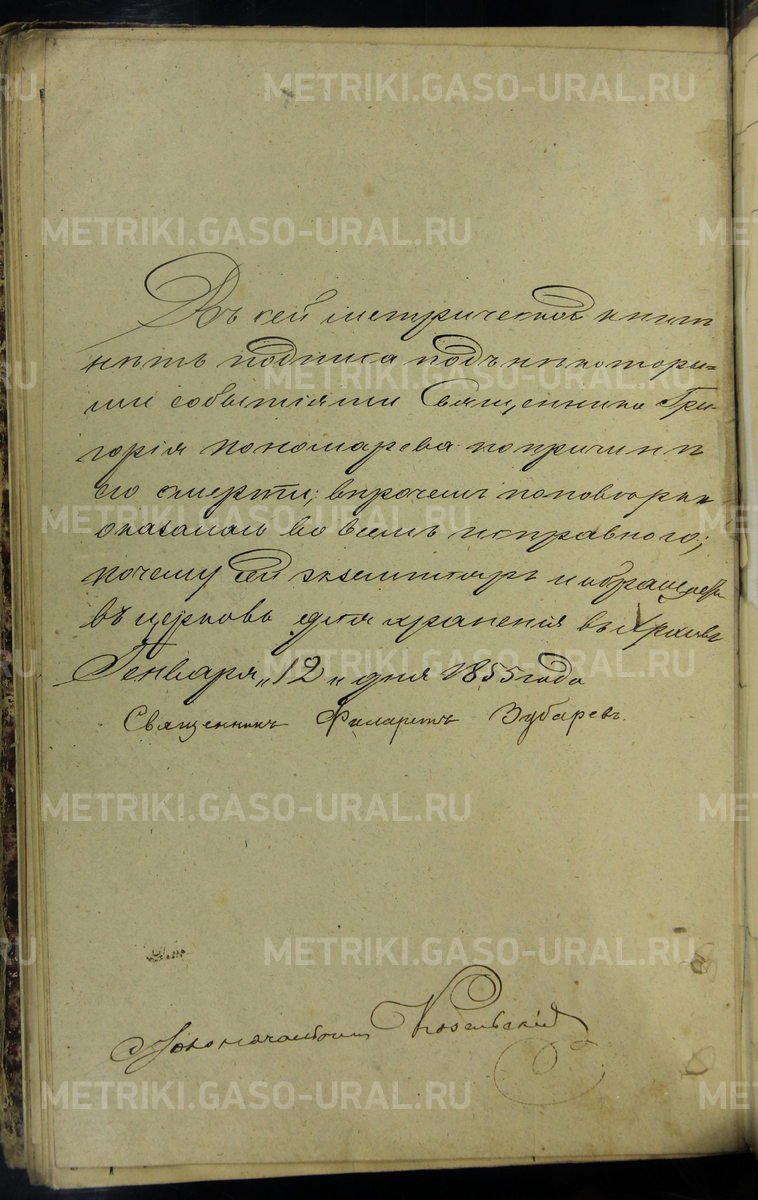 METRIKI.GASO-URAL.RU
METRIKI.GASO-URAL.RU
Въ сей метрической книгѣ
нѣтъ подписа подъ нѣкоторы-
METRIKI.GASO-URAL.RU
ми событіями Священника Гри-
горія Пономарева по причинѣ
его смерти; впрочемъ по повѣркѣ
METRIKI.GASO-URAL.RU
оказалась во всемъ исправною;
почему сей экземпляръ и обращается
въ церковь для хранения въ Архивѣ
METRIKI.GASO-URAL.RU
Генваря „12„ дня 1855 года
Священникъ Филаретъ Зубаревъ.
METRIKI.GASO-URAL.RU
METRIKI.GASO-URAL.RU
Столоначальникъ
METRIKI.GASO-URAL.RU